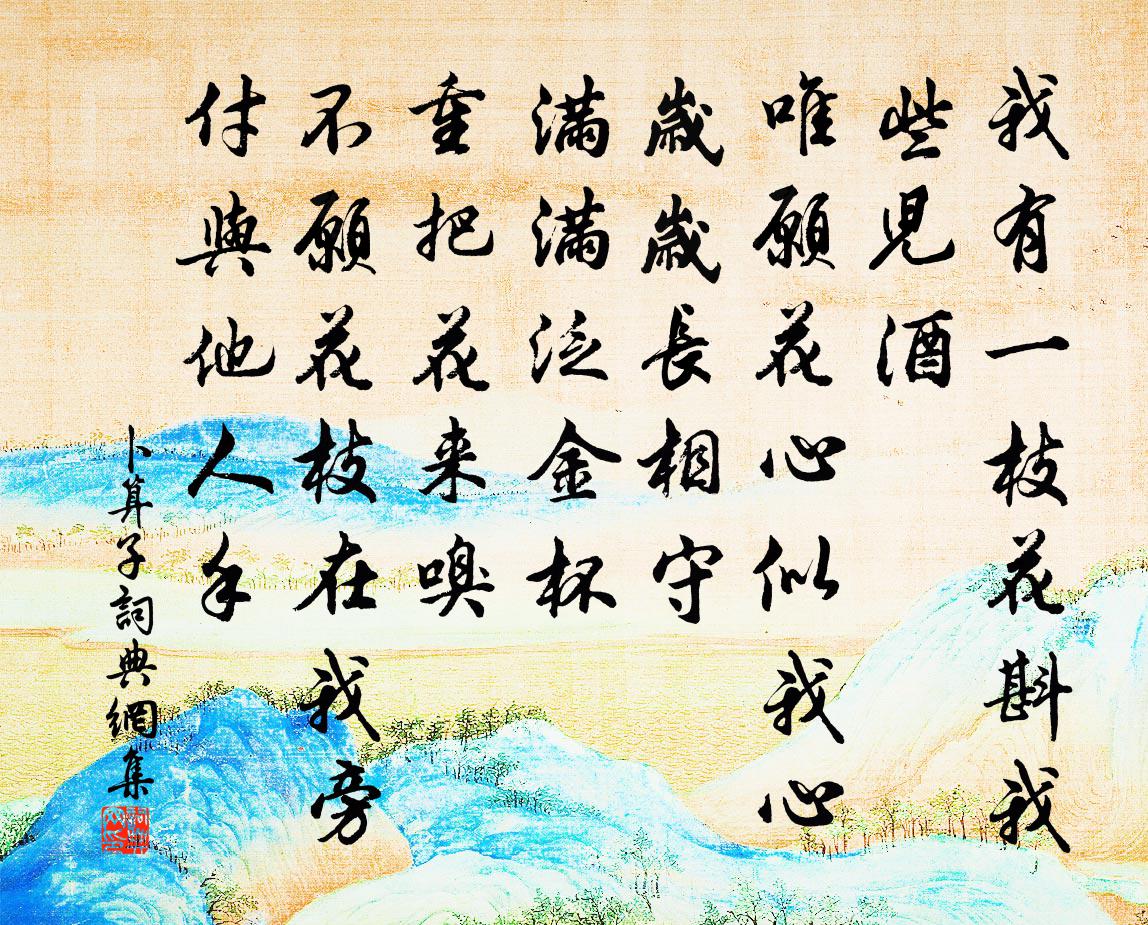 我有一枝花斟我
些兒酒
唯願花心似我心
歲歲長相守
滿滿泛金杯
重把花来嗅
不願花枝在我旁
付與他人手
卜算子詞典網集